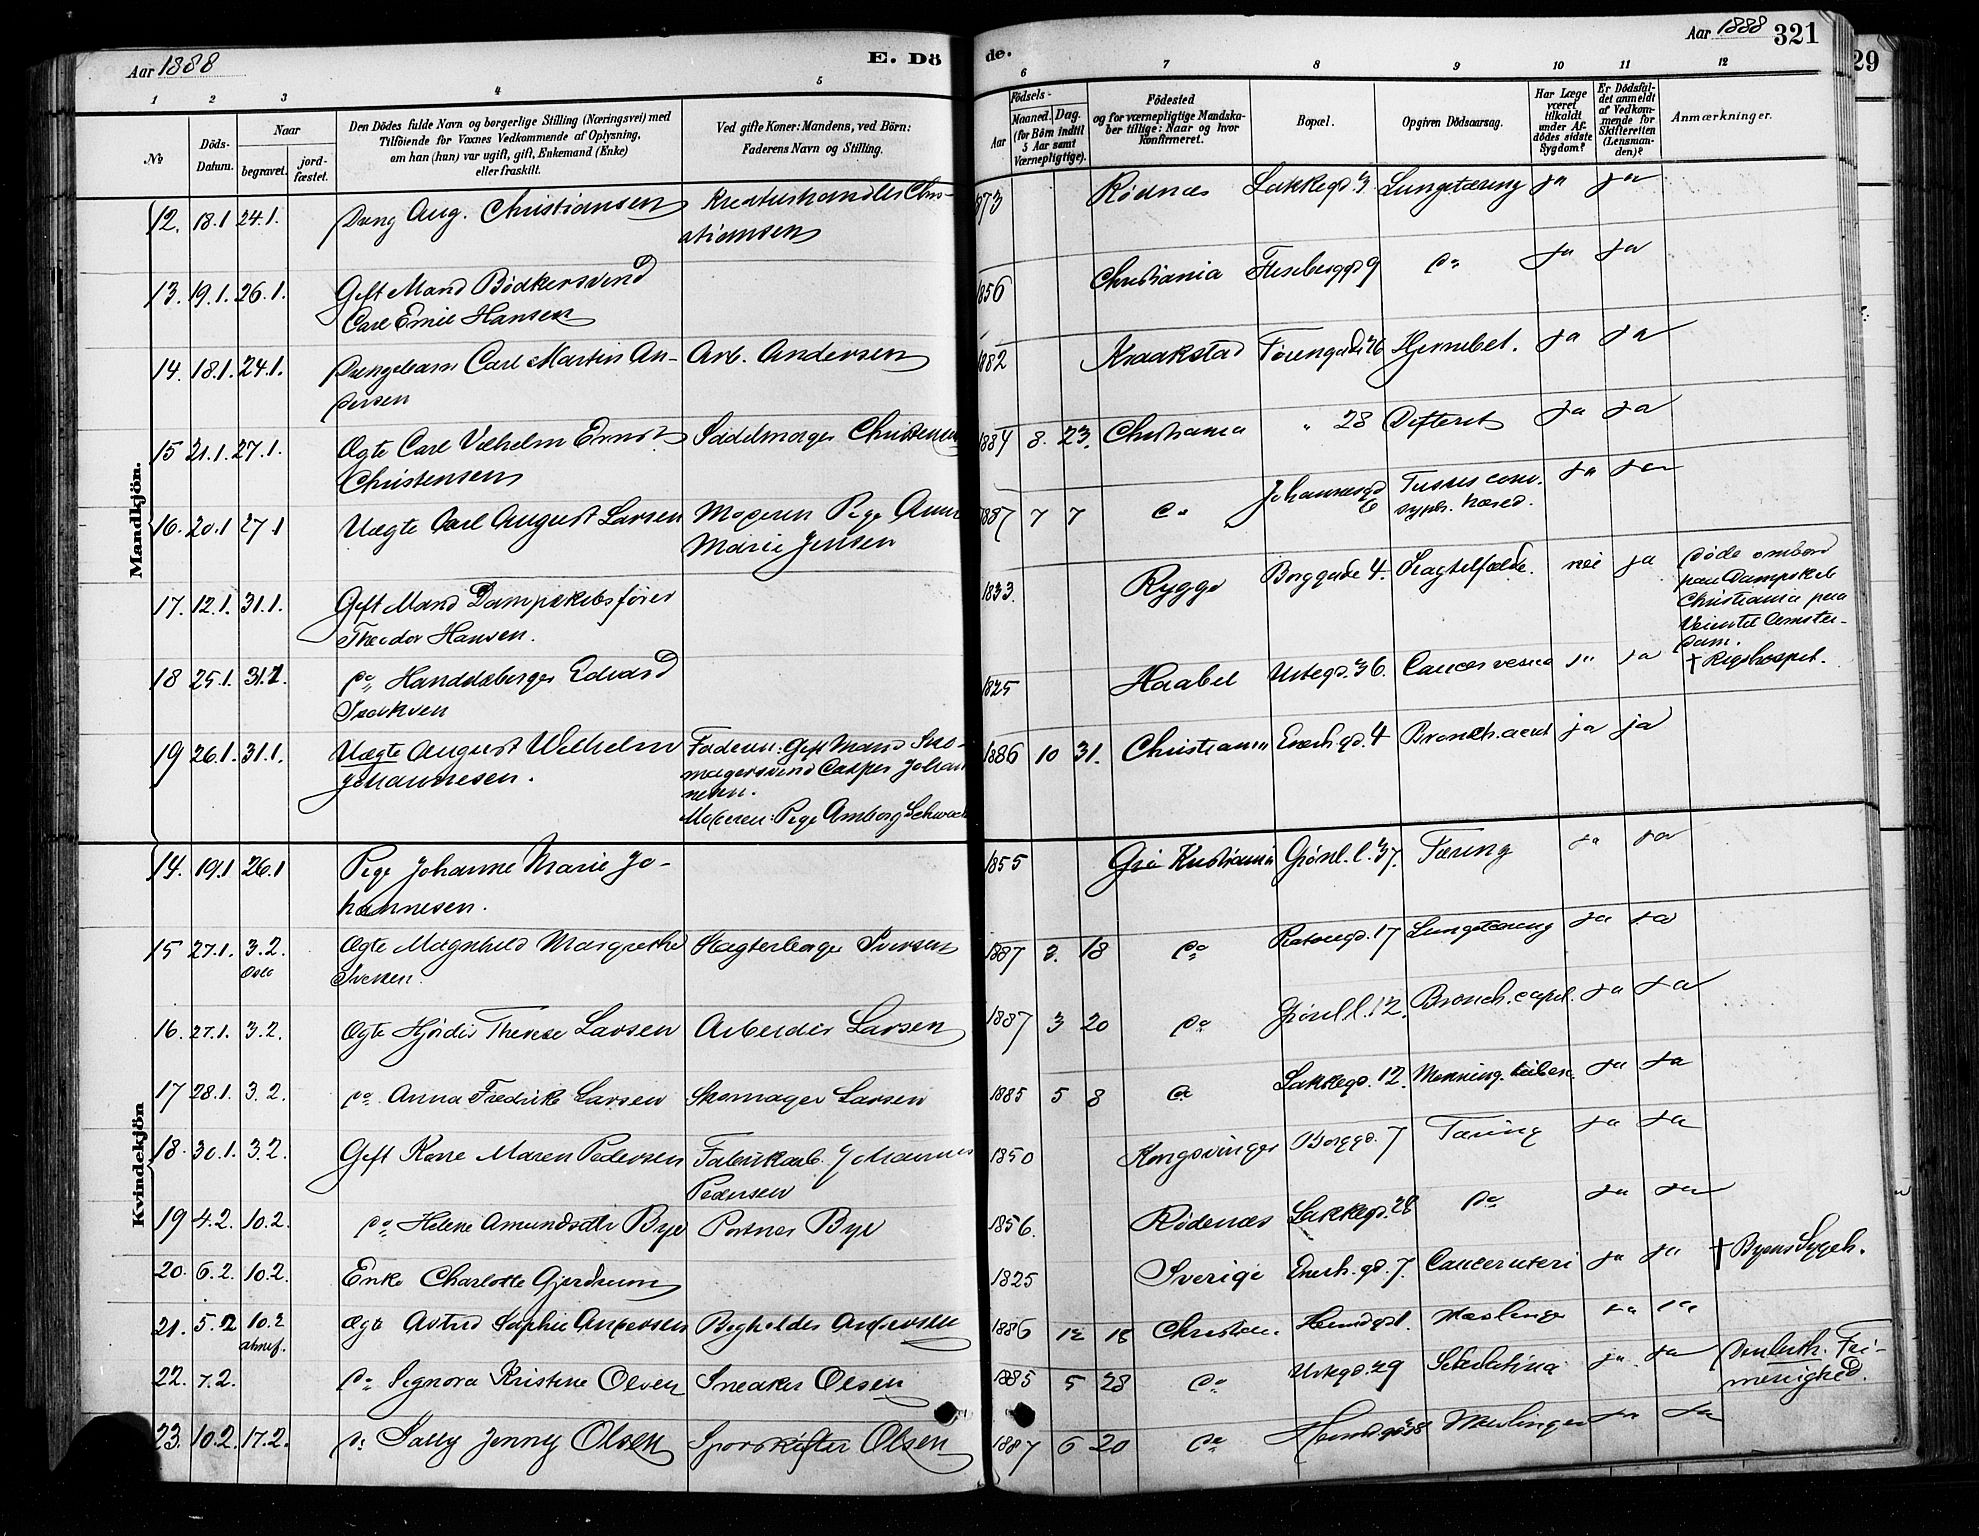 Aar 1888
E. Dö
de.
Aar 1888 321
29
1 2 3 4 5 6 7 8 9 10 11 12
No
Döds-
Datum.
Naar
begravet.
jord-
fæstet.
Den Dödes fulde Navn og borgerlige Stilling (Næringsvei) med
Tilföiende for Voxnes Vedkommende af Oplysning,
om han (hun) var ugift, gift, Enkemand (Enke)
eller fraskilt.
Ved gifte Koner: Mandens, ved Börn:
Faderens Navn og Stilling.
Födsels-
Aar
Maaned. Dag.
(for Börn indtil
5 Aar samt
Værnepligtige).
Födested
og for værnepligtige Mandska-
ber tillige: Naar og hvor
Konfirmeret.
Bopæl.
Opgiven Dödsaarsag.
Har Læge
været
tilkaldt
under Af-
dödes sidste
Sygdom?
Er Dödsfal-
det anmeldt
af Vedkom-
mende for
Skifteretten
(Lensman-
den)?
Anmærkninger.
Mandkjön.
12. 18.1 24.1. Dreng Aug. Christiansen Kreaturhandler Chri-
stiansen
873 Rödnæs Lakkegd. 3 Lungetæring ja ja
13. 19.1. 26.1. Gift Mand Bödkersvend
Carl Emil Hansen
1856 Christiania 9 do ja ja
14. 18.1. 24.1. Drengebarn Carl Martin An-
dersen
Arb. Andersen
1882 Kraakstad 26 Hjernebet. ja ja
15 21.1. 27.1. Ægte Carl Vilhelm Ernst
Christensen
Sadelmager Christensen
1884 8. 23. Christiania " 28 Difterit ja ja
16. 20.1 27.1 Uægte Carl August Larsen Moderen Pige Anne
Marie Jensen
1887 7 7 do Johannesgd 6 Tussis conv.
syph. hæred.
ja ja
17. 12.1. 31.1. Gift Mand Dampskibsförer
Theodor Hansen.
1833. Rygge Borggade 4. Slagtilfælde. nei ja döde ombord
paa Dampskib
Christiania paa
Veien til Amster-
dam.
18 25.1. 31.1 do Handelsborger Edvard
Isaksen
1825 Haabel Urtegd. 36. Cancer vesicæ ja ja † Rigshospit.
19 26.1. 31.1. Uægte August Wilhelm
Johannesen.
Faderen: Gift Mand Sko-
magersvend Casper Johan-
nesen.
Moderen: Pige Amborg
1886 10 31. Christiania Enerh.gd. 4 Bronch. acut ja ja
Kvindekjön
14. 19.1 26.1 Pige Johanne Marie Jo-
hannesen.
1855 Christiania Grönl. l. 37. Tæring ja ja
15 27.1. 3.2.
Oslo
Ægte Magnhild Margrethe
Iversen.
Slagterborger Iversen
1887 2. 18 do Platougd. 17 Lungetæring ja ja
16. 27.1. 3.2. Ægte Hjördis Therese Larsen Arbeider Larsen
1887 3 20 do Grönl. l. 12. Bronch. capil. ja ja
17 28.1. 3.2. do Anna Fredrikke Larsen Skomager Larsen
1885 5 8 do Lakkegd. 12. Menning. tuberc. ja ja
18. 30.1. 3.2. Gift Kone Maren Pedersen Fabrikarb. Johannes
Pedersen
1850 Kongsvinger Borggd. 7 Tæring ja ja
19 4.2. 10.2. do Helene Amundsdtr Bye Portner Bye
1856. Rödenæs Lakkegd. 28 do ja ja
20. 6.2. 10.2. Enke Charlotte Gjerdrum
1825 Sverige Enerh. gd. 7. Cancer uteri ja ja † Byens Sygeh.
21. 5.2 10.2 Ægte Astrid Sophie Andersen Bogholder Andersen
1886 12 18 Christian. Mæslinger ja ja
22. 7.2. do Signora Kristine Olsen Snedker Olsen
1885 5 28 do Urtegd. 29 Skarlatina ja ja Den luth. Fri-
menighed.
23. 10.2. 17.2. do Sally Jenny Olsen Sporskifter Olsen
1887 6 20 do Mæslinger ja ja